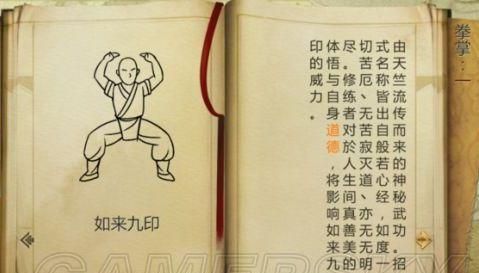 如来九印
拳掌:一
由天竺流传而来的神秘武功。招
式名称皆出自般若心经,如度一
切苦厄、无苦寂灭道、亦无无明
尽。修练者对於人生间真善美的
体悟与自身道德,将影响如来九
印的威力。
GAMERSKY